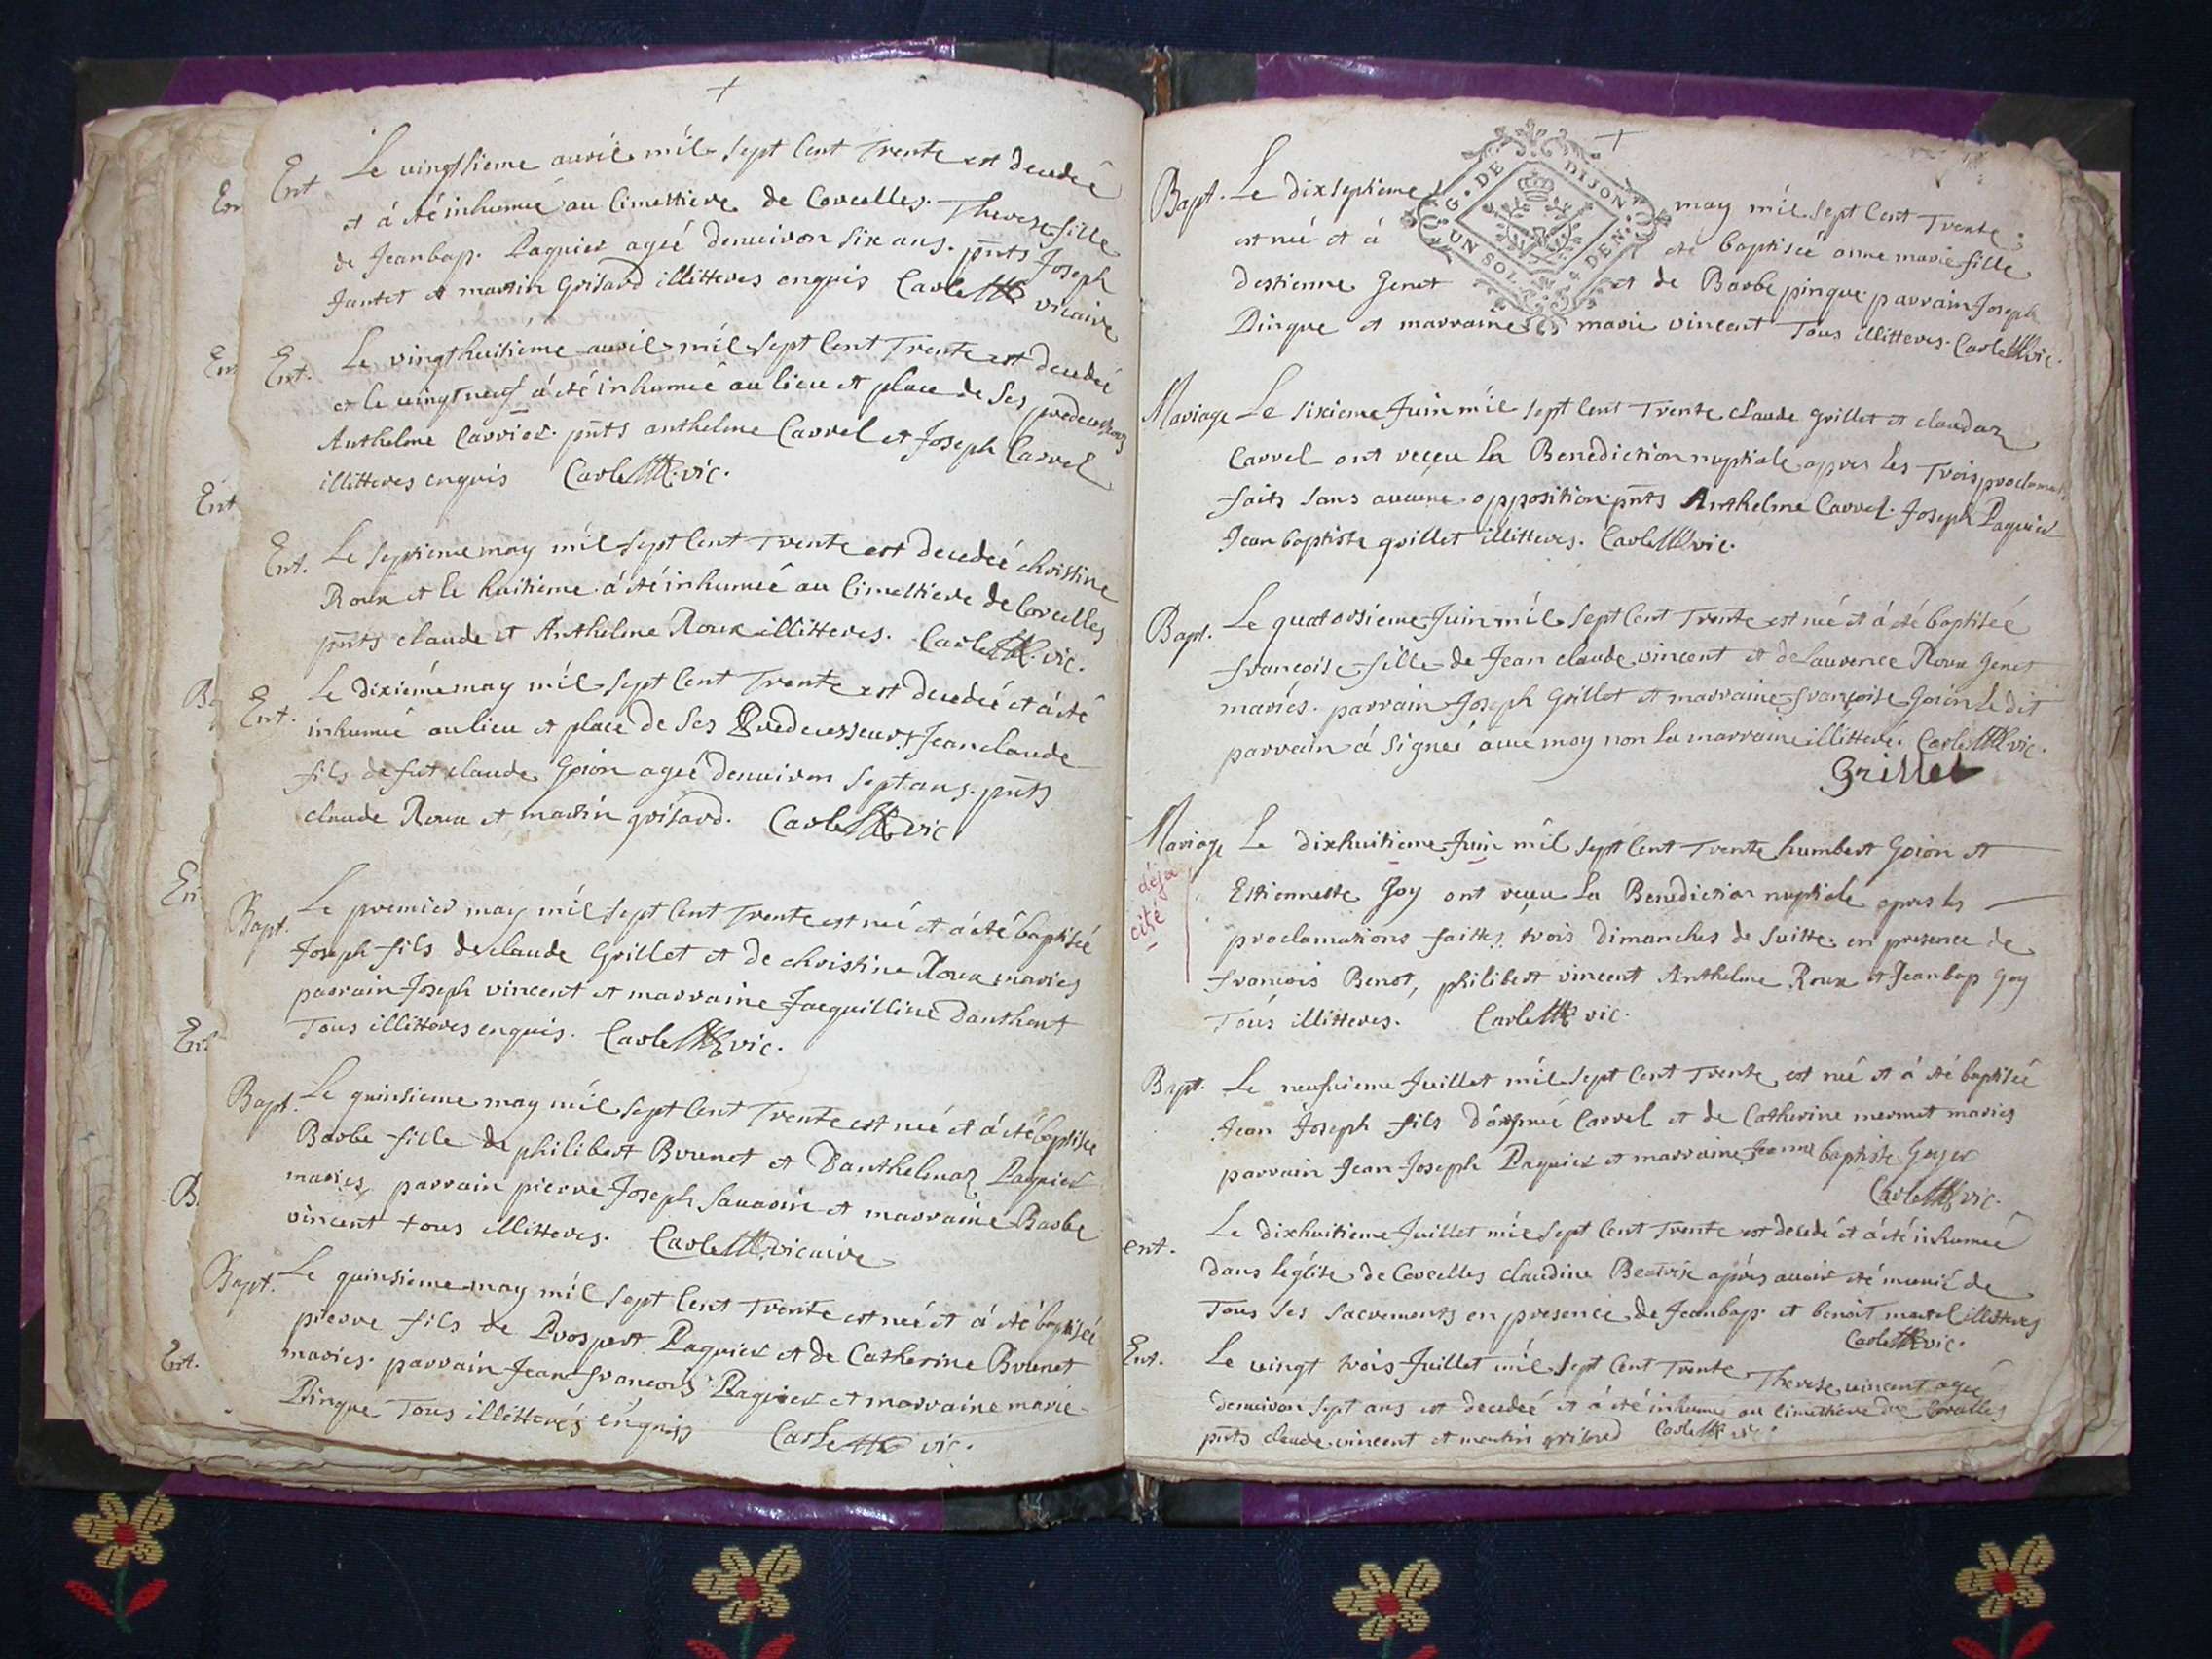 Ent Le vingtsieme avril mil sept Cent Trente est decedeé
et á été inhumeé au Cimettiere de Corcelles. Therese fille
de Jeanbap. Paquier ageé denuiron six ans. pnts Joseph
Jantet et martin Grisard illitteres enquis Carle vicaire
Ent. Le vingthuitieme avril mil sept Cent Trente est decedeé
et le vingtneuf á été inhumeé au lieu et place de Ses predecesseurs
Anthelme Carrier. pnts anthelme Carrel et Joseph Carrel
illitteres enquis Carle vic.
Ent. Le septieme may mil sept Cent Trente est decedeé christine
Roux et le huitieme á été inhumeé au Cimettiere de Corcelles
pnts claude et Anthelme Roux illitteres. Carle vic.
Ent. Le dixiéme may mil sept Cent Trente est decedeé et á été
inhumeé au lieu et place de Ses Predecesseurs Jean claude
fils de fut claude Goion ageé denuiron Sept ans. pnts
claude Roux et martin grisard. Carle vic
Bapt. Le premier may mil sept Cent Trente est neé et á été baptiseé
Joseph fils de claude Grillet et de christine Roux mariés
parrain Joseph vincent et marraine Jacquilline Danthent
Tous illitteres enquis. Carle vic.
Bapt. Le quinsieme may mil sept Cent Trente est neé et á été baptiseé
Barbe fille de philibert Brunet et Danthelmaz Paquier
mariés parrain pierre Joseph Sauarin et marraine Barbe
vincent tous illitteres. Carle vicaire
Bapt. Le quinsieme may mil sept Cent Trente est neé et á été baptiseé
pierre fils de Prospert Paquier et de Catherine Brunet
mariés. parrain Jean francois Paquier et marraine marie
Pinque Tous illitterés enquis Carle vic.
Bapt. Le dixseptieme may mil sept Cent Trente
est neé et á été baptiseé anne marie fille
destienne Genet et de Barbe pinque parrain Joseph
Pinque et marraine marie vincent Tous illitteres. Carle vic.
G. DE DIJON
UN SOL 4 DEN.
Mariage Le sixieme Juin mil sept Cent Trente claude Grillet et claudaz
Carrel ont reçeu La Benediction nuptiale apres les Trois proclamat
faits sans aucune opposition pnts Anthelme Carrel. Joseph Paquier
Jean baptiste grillet illitteres. Carle vic.
Bapt. Le quatorsieme Juin mil sept Cent Trente est neé et á été baptiseé
francoise fille de Jean claude vincent et de Laurence Roux Genet
mariés. parrain Joseph Grillet et marraine françoise Goion Le dit
parrain á signeé aueé moy non la marraine illittere. Carle vic.
Grillet
Mariage Le dixhuitieme Juin mil sept Cent Trente humbert Goion et
déja cité
Estiennette Goy ont receu La Benediction nuptiale apres les
proclamations faittes trois Dimanches de Suitte en presence de
francois Benot, philibert vincent Anthelme Roux et Jeanbap Goy
Tous illitteres. Carle vic.
Bapt. Le neufuieme Juillet mil sept Cent Trente est neé et á été baptiseé
Jean Joseph fils Carrel et de Catherine mermet mariés
parrain Jean Joseph Paquier et marraine Jeanne baptiste
Carle vic.
ent. Le dixhuitieme Juillet mil sept Cent Trente est decedé et á été inhumeé
dans léglise de Corcelles claudine apres auoir été munié de
Tous ses sacrements en presence de Jeanbap. et benoit martel illitteres
Carle vic.
Ent. Le vingt trois Juillet mil sept Cent Trente Therese vincent ageé
denuiron sept ans est decedeé et á été inhumé au Cimettiere de Corcelles
pnts claude vincent et martin grisard Carle vic.